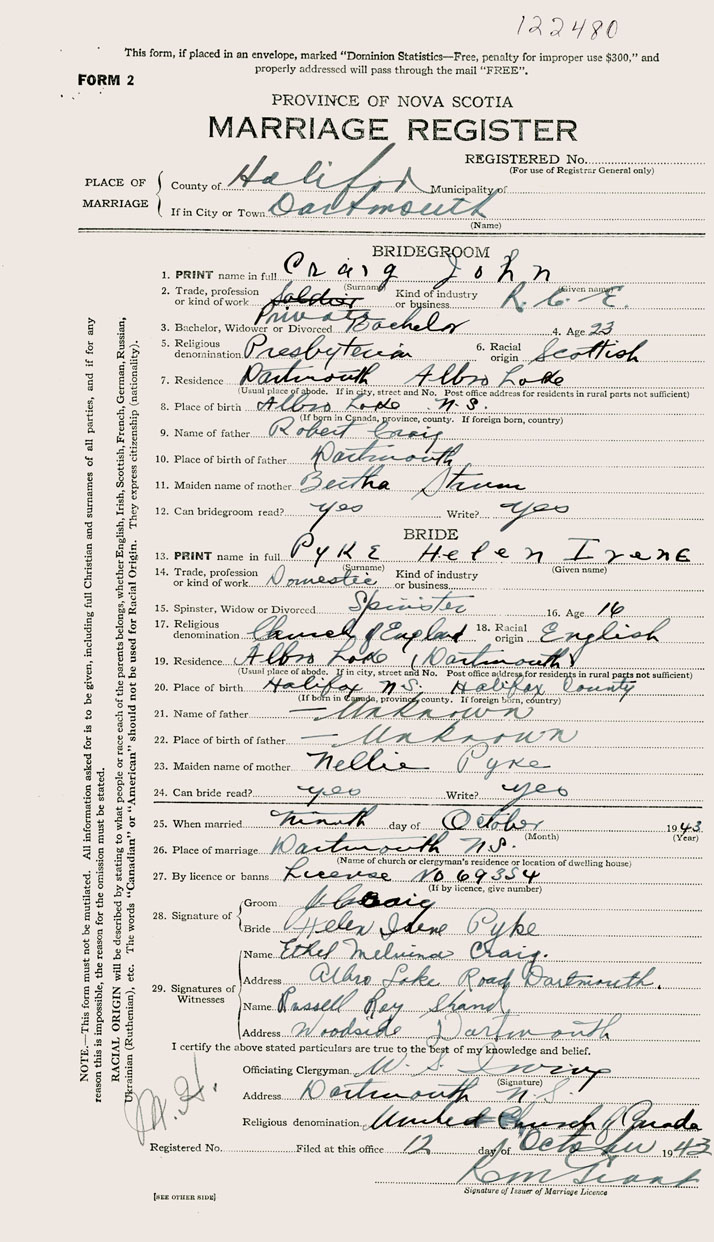 122480
This form, if placed in an envelope, marked "Dominion Statistics—Free, penalty for improper use $300," and
properly addressed will pass through the mail "FREE".
FORM 2
PROVINCE OF NOVA SCOTIA
MARRIAGE REGISTER
REGISTERED No.
(For use of Registrar General only)
PLACE OF MARRIAGE
County of Halifax Municipality of
If in City or Town Dartmouth
(Name)
BRIDEGROOM
1. PRINT name in full Craig John
(Surname) (Given name)
2. Trade, profession or kind of work Soldier Private Kind of industry or business R.C.E.
3. Bachelor, Widower or Divorced Bachelor 4. Age 23
5. Religious denomination Presbyterian 6. Racial origin Scottish
7. Residence Dartmouth Albro Lake
(Usual place of abode. If in city, street and No. Post office address for residents in rural parts not sufficient)
8. Place of birth Albro Lake N.S.
(If born in Canada, province, county. If foreign born, country)
9. Name of father Robert Craig
10. Place of birth of father Dartmouth
11. Maiden name of mother Bertha Strum
12. Can bridegroom read? yes Write? yes
BRIDE
13. PRINT name in full PYKE Helen Irene
(Surname) (Given name)
14. Trade, profession or kind of work Domestic Kind of industry or business
15. Spinster, Widow or Divorced Spinster 16. Age 16
17. Religious denomination Church of England 18. Racial origin English
19. Residence Albro Lake (Dartmouth)
(Usual place of abode. If in city, street and No. Post office address for residents in rural parts not sufficient)
20. Place of birth Halifax N.S. Halifax County
(If born in Canada, province, county. If foreign born, country)
21. Name of father — Unknown
22. Place of birth of father — Unknown
23. Maiden name of mother Nellie Pyke
24. Can bride read? yes Write? yes
25. When married ninth day of October 1943
(Month) (Year)
26. Place of marriage Dartmouth N.S.
(Name of church or clergyman's residence or location of dwelling house)
27. By licence or banns License No 69354
(If by licence, give number)
28. Signature of
Groom J Craig
Bride Helen Irene Pyke
29. Signatures of Witnesses
Name Ethel Melvina Craig.
Address Albro Lake Road Dartmouth.
Name Russell Ray Shand
Address Woodside Dartmouth
I certify the above stated particulars are true to the best of my knowledge and belief.
Officiating Clergyman W. S. Irving
(Signature)
Address Dartmouth N.S.
Religious denomination United Church of Canada
Registered No. Filed at this office 12 day of October 1943
R M Grant
Signature of Issuer of Marriage Licence
[SEE OTHER SIDE]
NOTE.—This form must not be mutilated. All information asked for is to be given, including full Christian and surnames of all parties, and if for any
reason this is impossible, the reason for the omission must be stated.
RACIAL ORIGIN will be described by stating to what people or race each of the parents belongs, whether English, Irish, Scottish, French, German, Russian,
Ukrainian (Ruthenian), etc. The words "Canadian" or "American" should not be used for Racial Origin. They express citizenship (nationality).